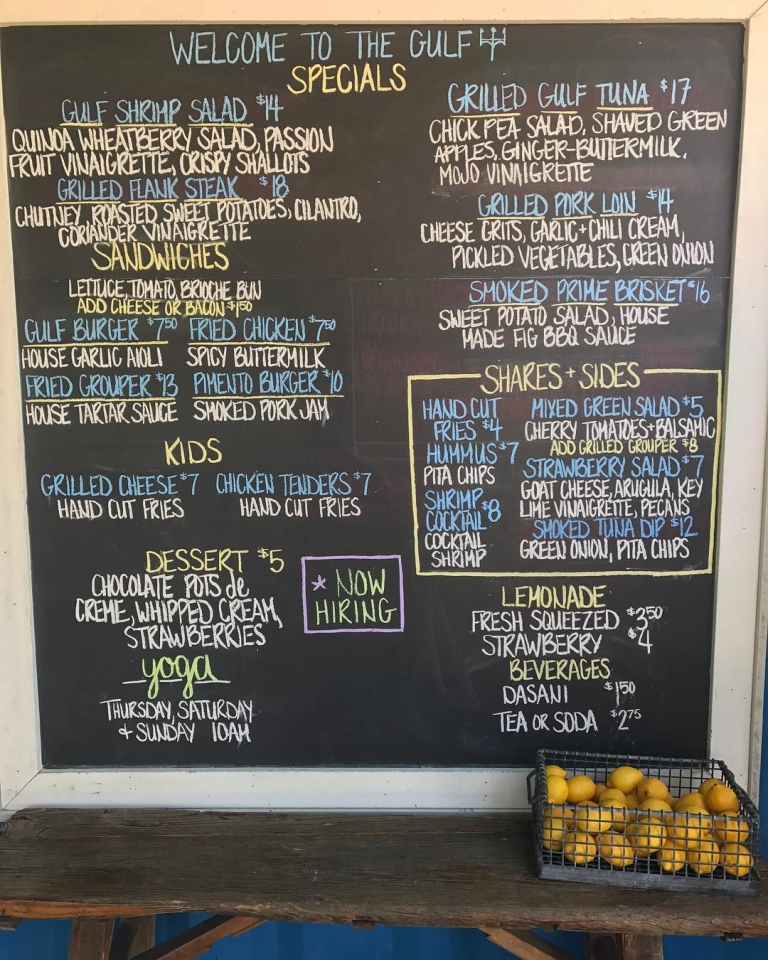 WELCOME TO THE GULF
SPECIALS
GULF SHRIMP SALAD $14
QUINOA WHEATBERRY SALAD, PASSION
FRUIT VINAIGRETTE, CRISPY SHALLOTS
GRILLED FLANK STEAK $18
CHUTNEY, ROASTED SWEET POTATOES, CILANTRO,
CORIANDER VINAIGRETTE
GRILLED GULF TUNA $17
CHICK PEA SALAD, SHAVED GREEN
APPLES, GINGER-BUTTERMILK,
MOJO VINAIGRETTE
GRILLED PORK LOIN $14
CHEESE GRITS, GARLIC+CHILI CREAM,
PICKLED VEGETABLES, GREEN ONION
SMOKED PRIME BRISKET $16
SWEET POTATO SALAD, HOUSE
MADE FIG BBQ SAUCE
SANDWICHES
LETTUCE, TOMATO, BRIOCHE BUN
ADD CHEESE OR BACON $1.50
GULF BURGER $7.50
HOUSE GARLIC AIOLI
FRIED CHICKEN $7.50
SPICY BUTTERMILK
FRIED GROUPER $13
HOUSE TARTAR SAUCE
PIMENTO BURGER $10
SMOKED PORK JAM
KIDS
GRILLED CHEESE $7
HAND CUT FRIES
CHICKEN TENDERS $7
HAND CUT FRIES
SHARES + SIDES
HAND CUT
FRIES $4
HUMMUS $7
PITA CHIPS
SHRIMP
COCKTAIL $8
COCKTAIL
SHRIMP
MIXED GREEN SALAD $5
CHERRY TOMATOES+BALSAMIC
ADD GRILLED GROUPER $8
STRAWBERRY SALAD $7
GOAT CHEESE, ARUGULA, KEY
LIME VINAIGRETTE, PECANS
SMOKED TUNA DIP $12
GREEN ONION, PITA CHIPS
DESSERT $5
CHOCOLATE POTS de
CREME, WHIPPED CREAM,
STRAWBERRIES
* NOW
HIRING
yoga
THURSDAY, SATURDAY
+ SUNDAY 10AM
LEMONADE
FRESH SQUEEZED $3.50
STRAWBERRY $4
BEVERAGES
DASANI $1.50
TEA OR SODA $2.75